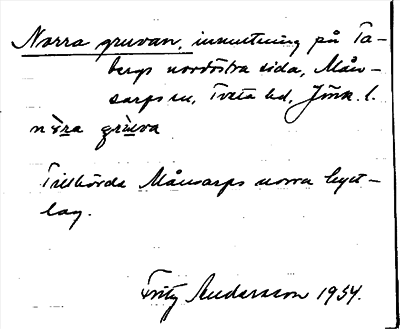 Norra gruvan, inmutning på Ta-
bergs nordöstra sida, Måns-
sarps sn, Tveta hd, Jönk. l.
nòra grùva
Tillhörde Månsarps norra hytt-
lag.
Fritz Andersson 1934.